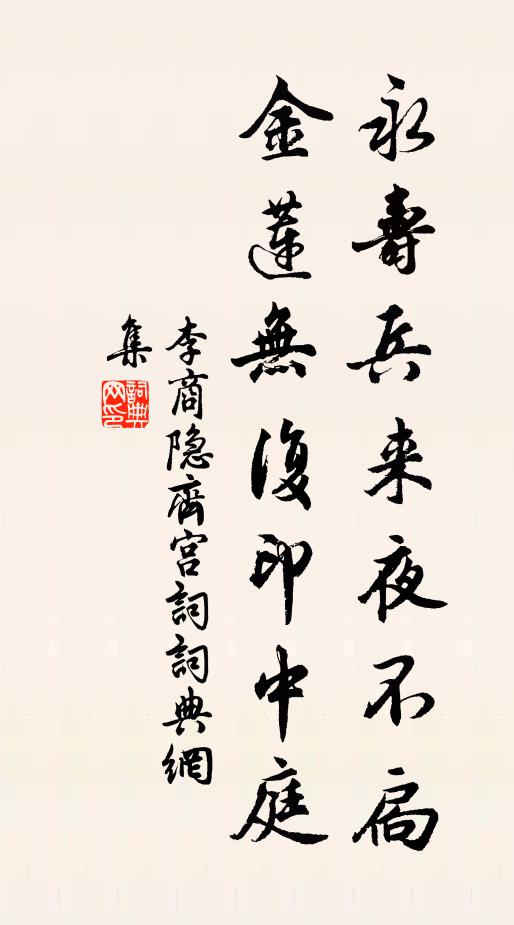 永壽兵来夜不扃
金蓮無復印中庭
李商隐齊宫詞詞典網
集
詞典網印